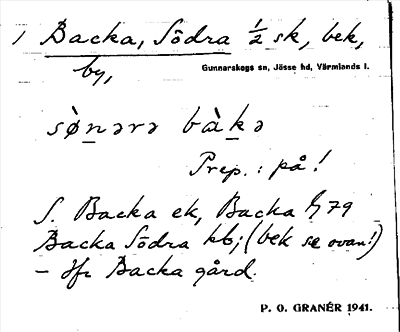 1 Backa, Södra ½ sk, bek,
by,
Gunnarskogs sn, Jösse hd, Värmlands l.
sø̀n̲ərə bàk̲ə
Prep.: på!
S. Backa ek, Backa 79
Backa Södra kb; (bek se ovan!)
– Jfr Backa gård.
P. O. GRANÉR 1941.